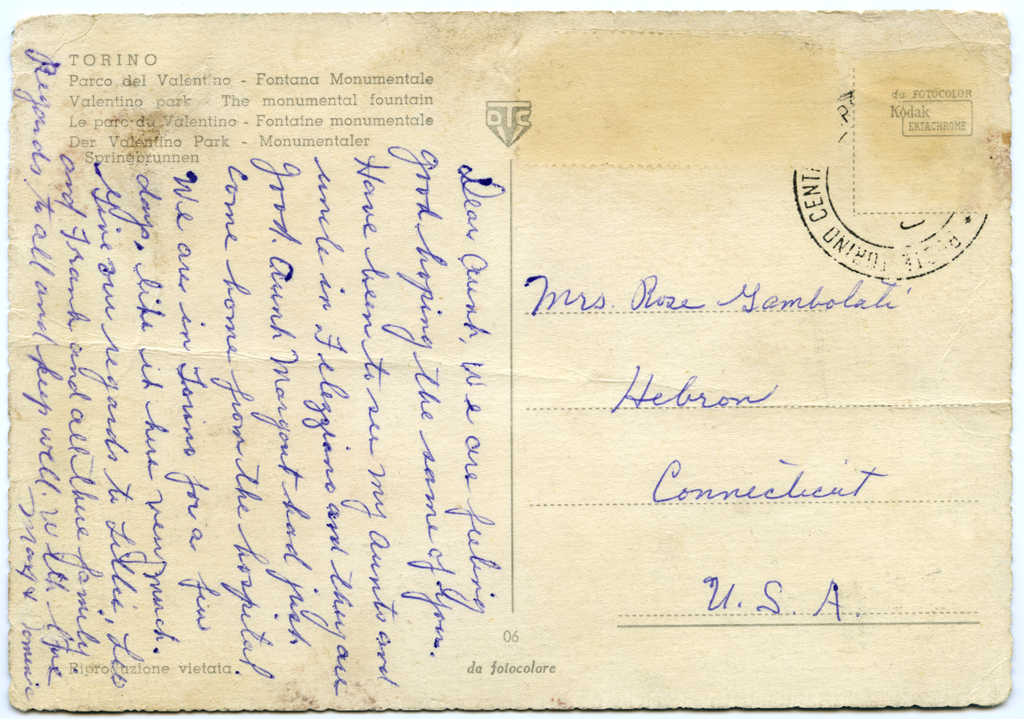 TORINO
Parco del Valentino - Fontana Monumentale
Valentino park - The monumental fountain
Le parc du Valentino - Fontaine monumentale
Der Valentino Park - Monumentaler
Springbrunnen
DTC
da FOTOCOLOR
Kodak
EKTACHROME
POSTE TORINO CENT
Dear Aunt, We are feeling
good hoping the same of you.
Have been to see my aunts and
uncle in and they are
good. Aunt Margaret had just
come home from the hospital
We are in Torino for a few
days. like it here very much.
Give our regards to Lillie, Leo
and Frank and all there family
Regards to all and keep well. with love
Mary & Domenic
Mrs. Rose Gambolati
Hebron
Connecticut
U. S. A.
Riproduzione vietata.
06
da fotocolore